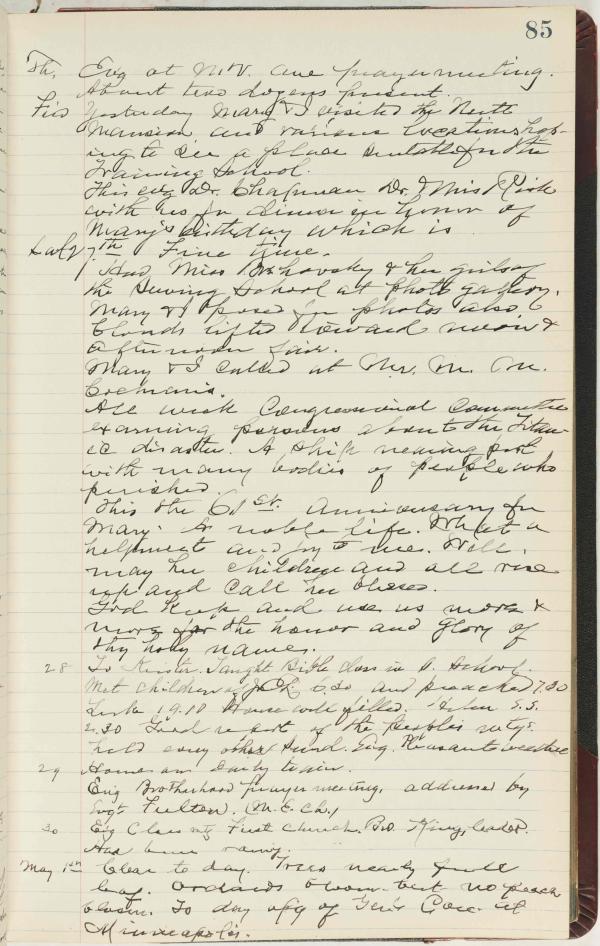 85
Th. Evg at M.V. Ave prayermeeting.
About two dozens present.
Fri Yesterday Mary & I visited the
Mansion and various locations hop-
ing to see a place suitable for the
Training School.
This evg Dr. Chapman Dr. & Miss Kirk
with us for dinner in honor of
Mary's birthday which is
Sat 27th Fine time.
Had Miss & her girls of
the Sewing School at Photo gallery.
Mary & I posed for photos also.
Clouds lifted toward noon &
afternoon fair.
Mary & I called at Mr. M. M.
Cochran's.
All week Congressional Committee
examing persons about the Titan-
ic disaster. A ship nearing port
with many bodies of people who
perished.
This the 61st. Anniversary for
Mary. A noble life. What a
helpmeet and joy to me. Well
may her children and all rise
up and call her blessed.
God keep and use us more &
more for the honor and glory of
thy holy names.
28 To . Taught Bible class in S. School.
Met children at 6.30 and preached 7.30
Luke 19.10 House well filled. S.S.
2.30 Good report of the mtgs.
held every other Sund. Evg. Pleasant weather
29 Home on Daily train.
Evg Brotherhood prayer meeting, addressed by
Evgt Fulton. (M.E.Ch.)
30 Evg Class mtg First Church. Bro. King, leader.
Had been rainy.
May 1st Clear to day. Trees nearly full
leaf. Orchards bloom but no peach
blossom. To day opg of Gen'l Conc. at
Minneapolis.